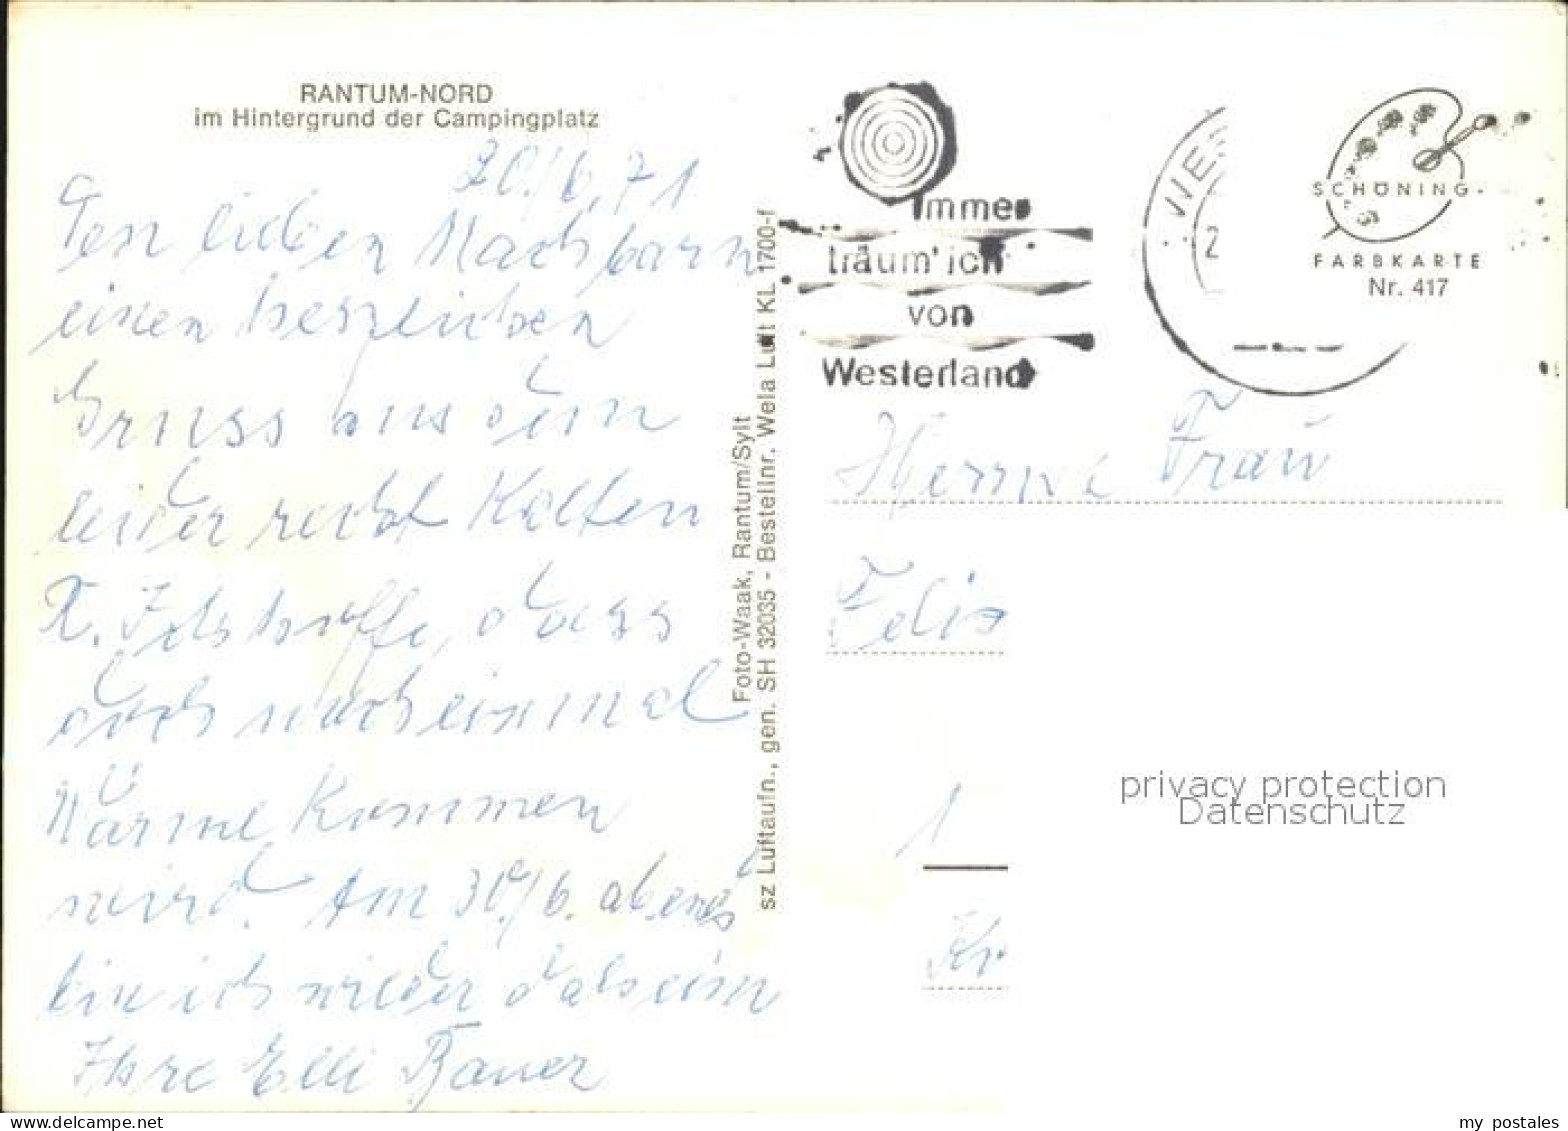 RANTUM-NORD
im Hintergrund der Campingplatz
20./6.71
Den lieben Nachbarn
einen herzlichen
Gruss aus dem
leider recht Kalten
X. Ich hoffe, dass
doch noch einmal
Wärme Kommen
wird. Am 30./6. abends
bin ich wieder daheim
Ihre Elli Bauer
Foto-Waak, Rantum/Sylt
sz Luftaufn., gen. SH 32035 - Bestellnr. Wela Luft KL 1700-f
Immer
träum' ich
von
Westerland
WES
2
SCHÖNING
FARBKARTE
Nr. 417
Herrn u Frau
Felix
1
Kr
privacy protection
Datenschutz
delcampe.net
my postales